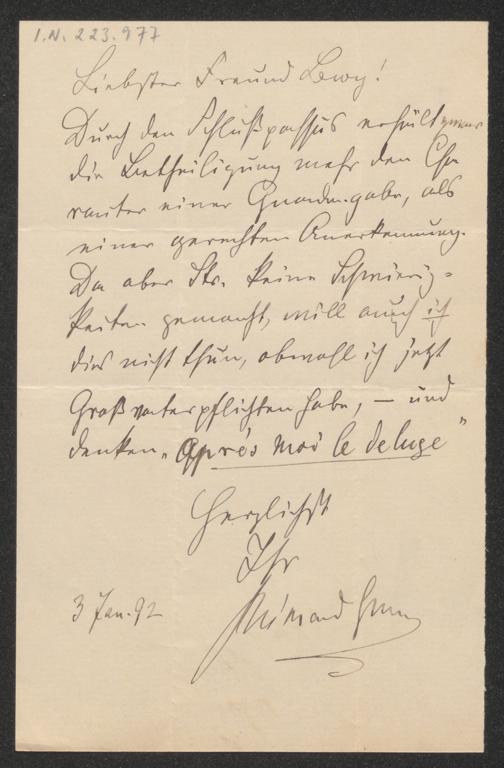 I.N. 223.977
Liebster Freund Lewy!
Durch den Schlußpassus erhält zwar
die Betheiligung mehr den Cha
rakter einer Gnadengabe, als
einer gerechten Anerkennung.
Da aber Str. keine Schwierig-
keiten gemacht, will auch ich
dies nicht thun, obwohl ich jetzt
Großvaterpflichten habe, – und
denken „Aprés moi le deluge"
Herzlichst
Ihr
3 Jan. 92